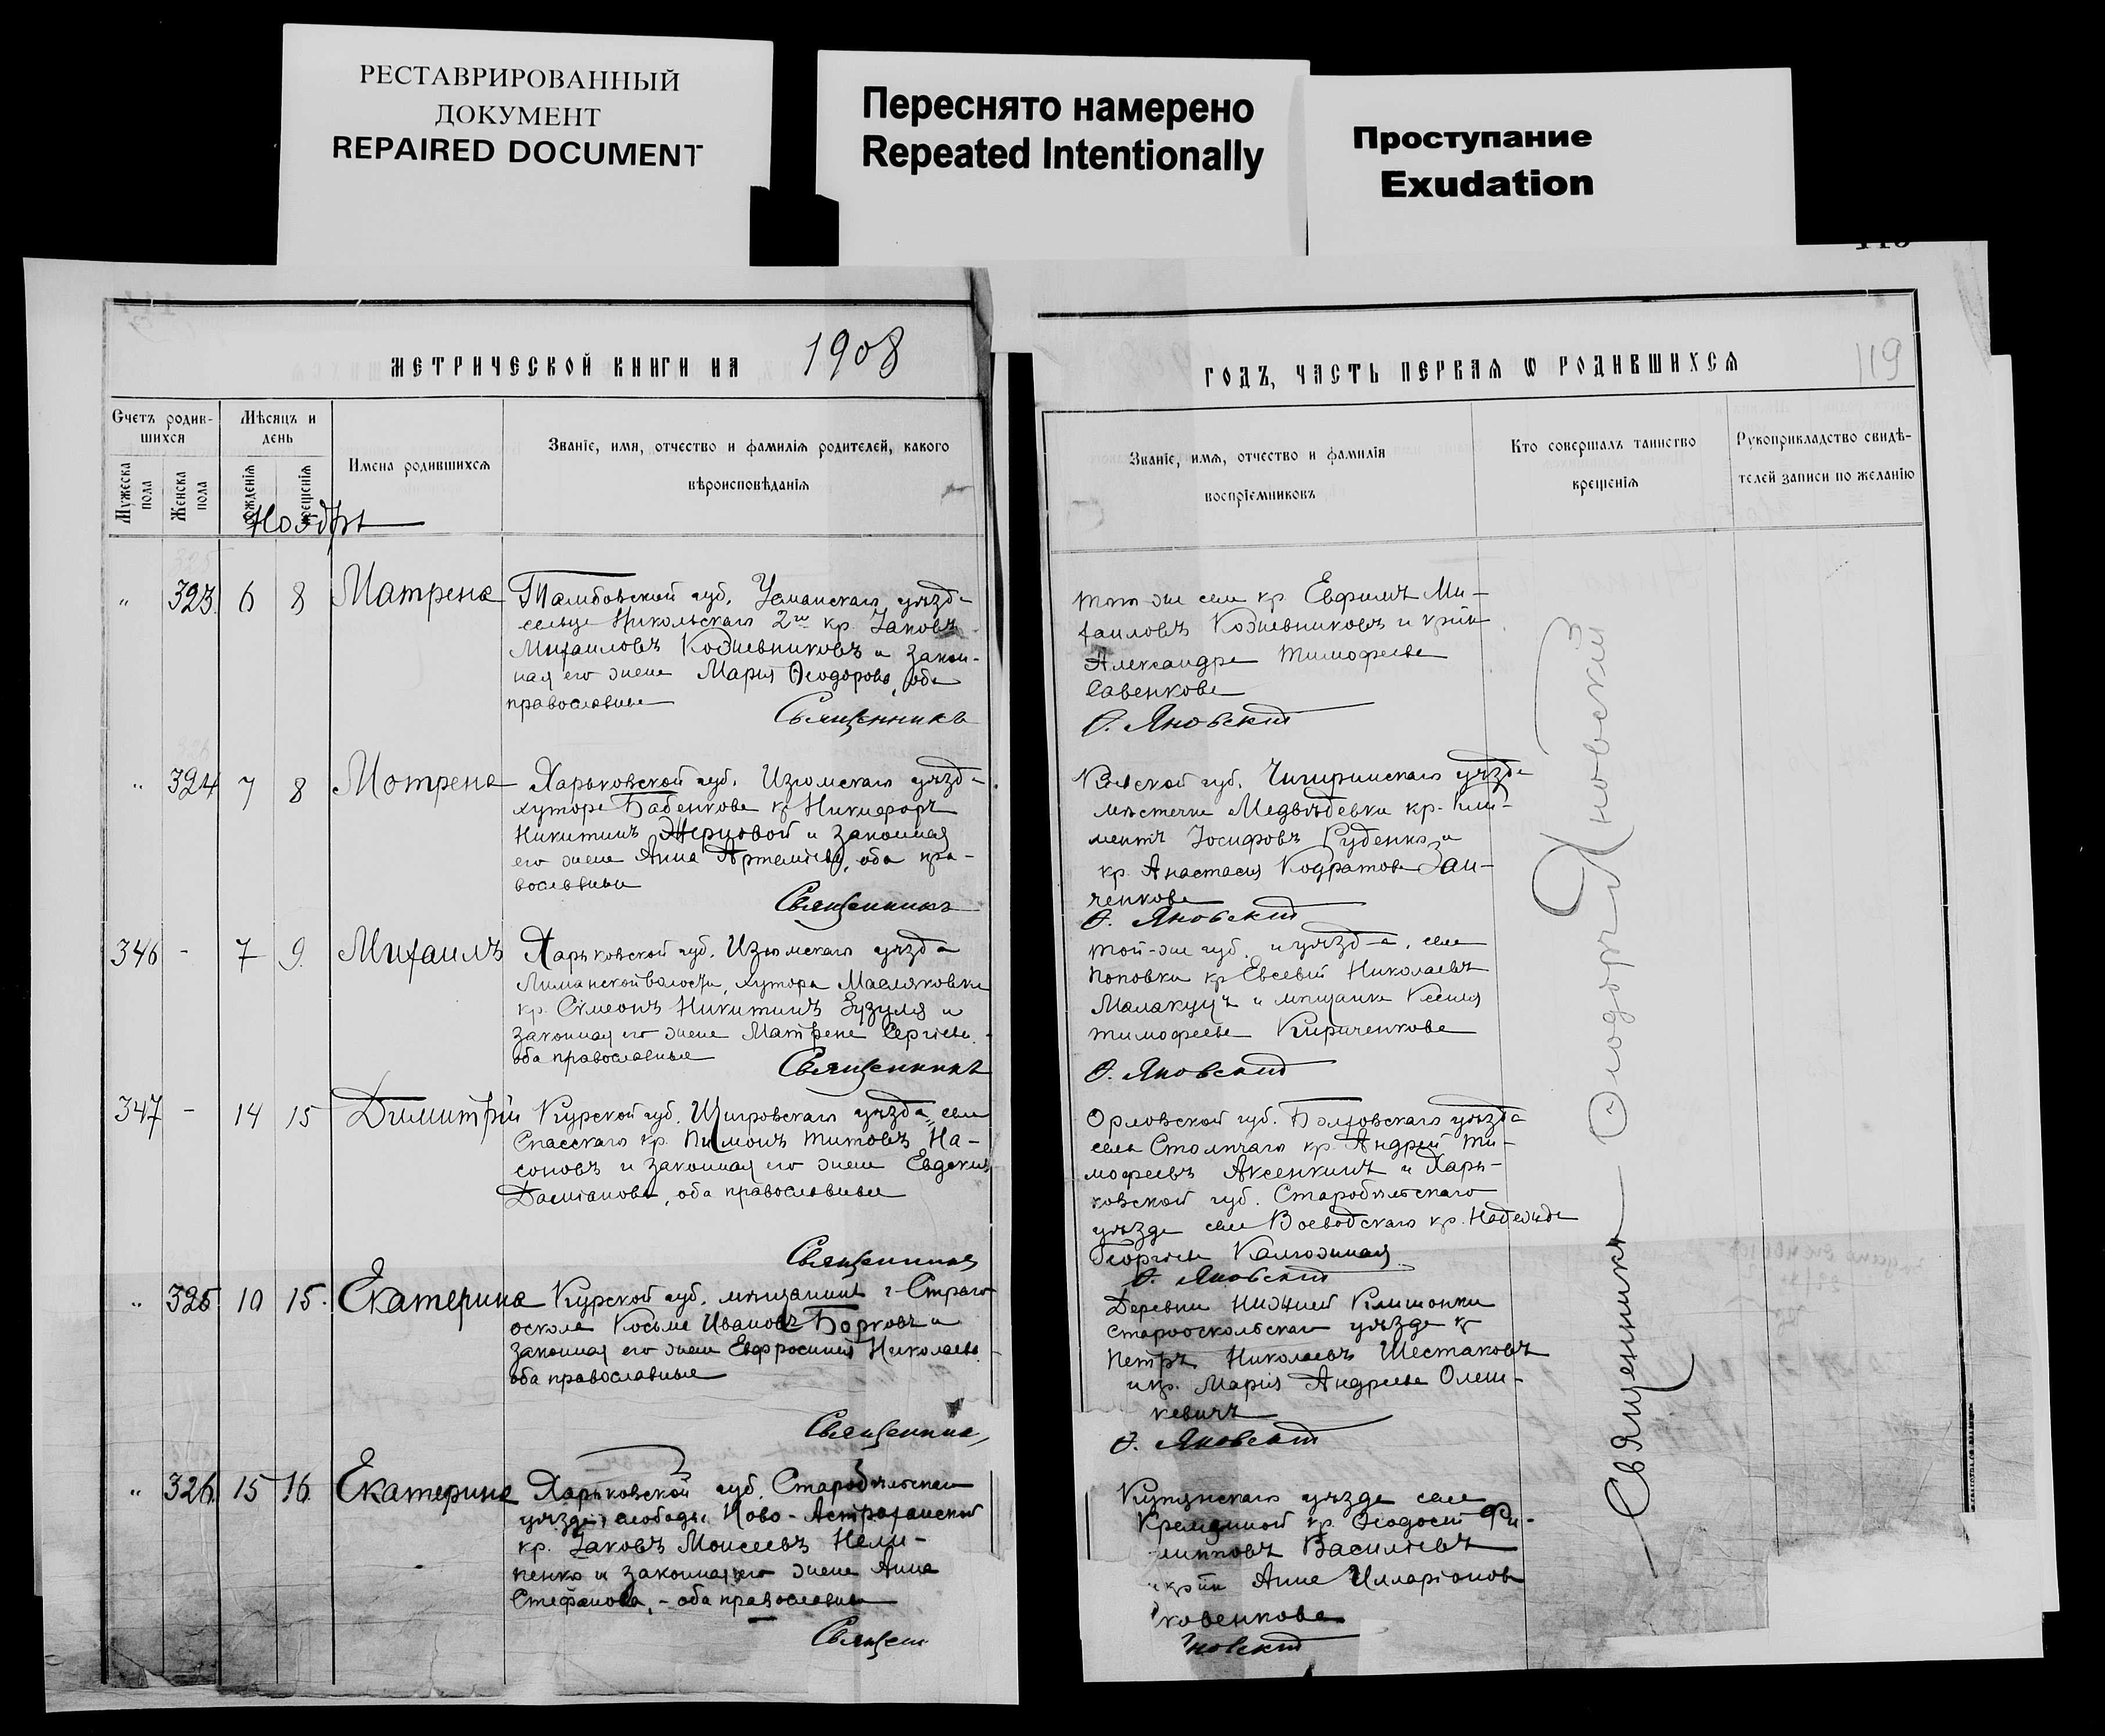 РЕСТАВРИРОВАННЫЙ
ДОКУМЕНТ
REPAIRED DOCUMENT
Переснято намерено
Repeated Intentionally
Проступание
Exudation
МЕТРИЧЕСКОЙ КНИГИ НА 1908
Счетъ родив-
шихся
Мужеска пола
Женска пола
Мѣсяцъ и
день
рожденія
крещенія
Имена родившихся
Званіе, имя, отчество и фамилія родителей, какого
вѣроисповѣданія
Ноябрь
" 323. 6 8 Матрена
Тамбовской губ. Усманскаго уѣзда
сельца Никольскаго 2го кр. Іаковъ
Михаиловъ Кожевниковъ и закон-
ная его жена Марія Ѳеодорова, оба
православные
Священникъ
" 324 7 8 Мотрена
Харьковской губ. Изюмскаго уѣзда
хутора Бабенкова кр. Никифоръ
Никитинъ и законная
его жена Анна Артеміева, оба пра-
вославные
Священникъ
346 - 7 9. Михаилъ
Харьковской губ. Изюмскаго уѣзда
Лиманской волости, хутора Масляковки
кр. Симеонъ Никитинъ Зузуля и
законная его жена Матрена Сергіева.
оба православные
Священникъ
347 - 14 15 Димитрій
Курской губ. Щигровскаго уѣзда, села
Спасскаго кр. Пимонъ Титовъ На-
соновъ и законная его жена Евдокія
Даміанова, оба православные
Священникъ
" 325 10 15. Екатерина
Курской губ. мѣщанинъ г. Стараго
оскола Косьма Ивановъ Борковъ и
законная его жена Евфросинія Николаева
оба православные
Священник
" 326. 15 16. Екатерина
Харьковской губ. Старобѣльскаго
уѣзда, слободы Ново-Астраханской
кр. Іаковъ Моисеевъ Нели-
пенко и законная его жена Анна
Стефанова, - оба православные
Священ
ГОДЪ, ЧАСТЬ ПЕРВАЯ Ѡ РОДИВШИХСЯ
119
Званіе, имя, отчество и фамилія
воспріемниковъ
Кто совершалъ таинство
крещенія
Рукоприкладство свидѣ-
телей записи по желанію
того-же села кр. Евфимъ Ми-
хаиловъ Кожевниковъ и кр-ка
Александра Тимофеева
Савенкова
Ѳ. Яновскій
Кіевской губ. Чигиринскаго уѣзда
мѣстечка Медвѣдевки кр. Кли-
ментъ Іосифовъ Руденко и
кр. Анастасія Кодратова Заи-
ченкова
Ѳ. Яновскій
той-же губ. и уѣзда, села
Поповки кр. Евсевій Николаевъ
Малакуцъ и мѣщанка Ксенія
Тимофеева Кириченкова
Ѳ. Яновскій
Орловской губ. Болховскаго уѣзда
села кр. Андрей Ти-
мофеевъ Аксенкинъ и Харь-
ковской губ. Старобѣльскаго
уѣзда села Воеводскаго кр. Надежда
Георгіева Калюжная
Ѳ. Яновскій
Деревни Нижней
Старооскольскаго уѣзда кр
Петръ Николаевъ Шестаковъ
и кр. Марія Андреева Олеш-
кевичъ
Ѳ. Яновскій
Купянскаго уѣзда села
Кременной кр. Ѳеодосій Фи-
липповъ Василіевъ
и кр-ка Анна Илларіонова
ковенкова
новскій
Священникъ Ѳеодоръ Яновскій